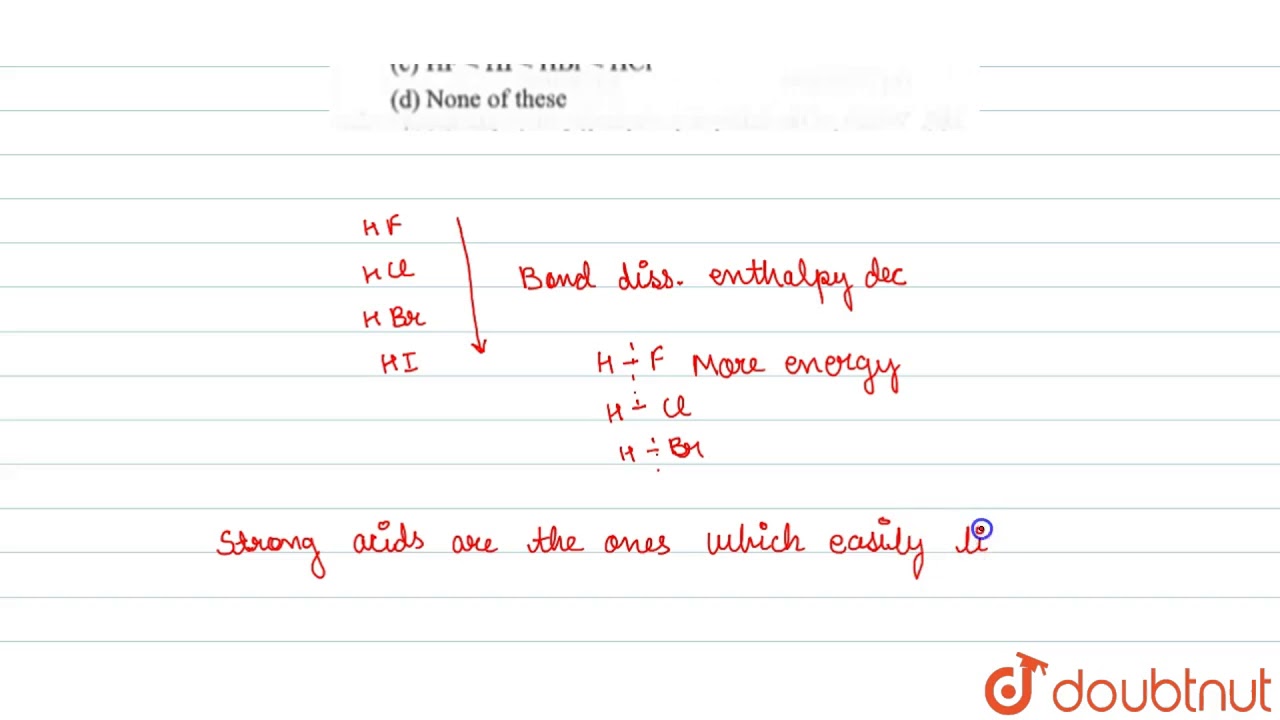 (c) HF < HI < HBr < HCl
(d) None of these
HF
HCl
Bond diss. enthalpy dec
HBr
HI
H - F More energy
H - Cl
H - Br
Strong acids are the ones which easily li
doubtnut